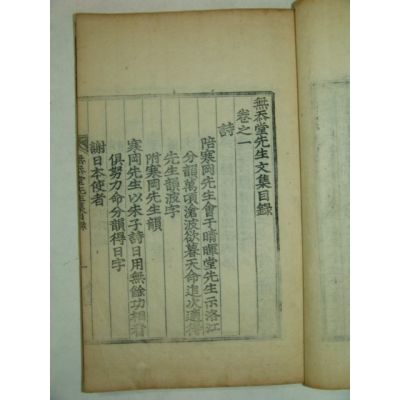 無忝堂先生文集目錄
卷之一
詩
陪寒岡先生會于晴暉堂先生示洛江
分韻萬頃滄波欲暮天命進次適得
先生韻波字
附寒岡先生韻
寒岡先生以朱子詩日用無餘功相看
俱努力命分韻得日字
謝日本使者